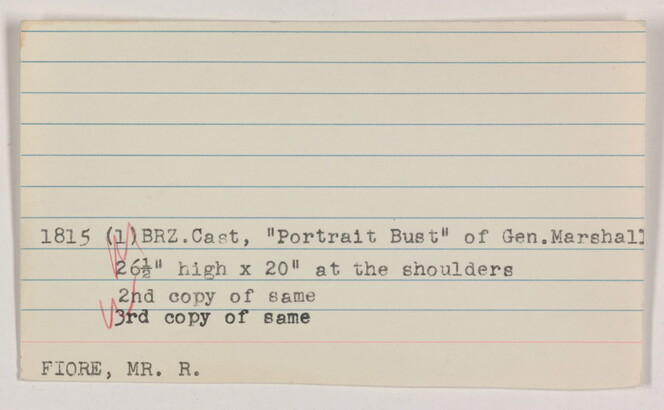 1815 (1)BRZ.Cast, "Portrait Bust" of Gen.Marshall
26½" high x 20" at the shoulders
2nd copy of same
3rd copy of same
FIORE, MR. R.